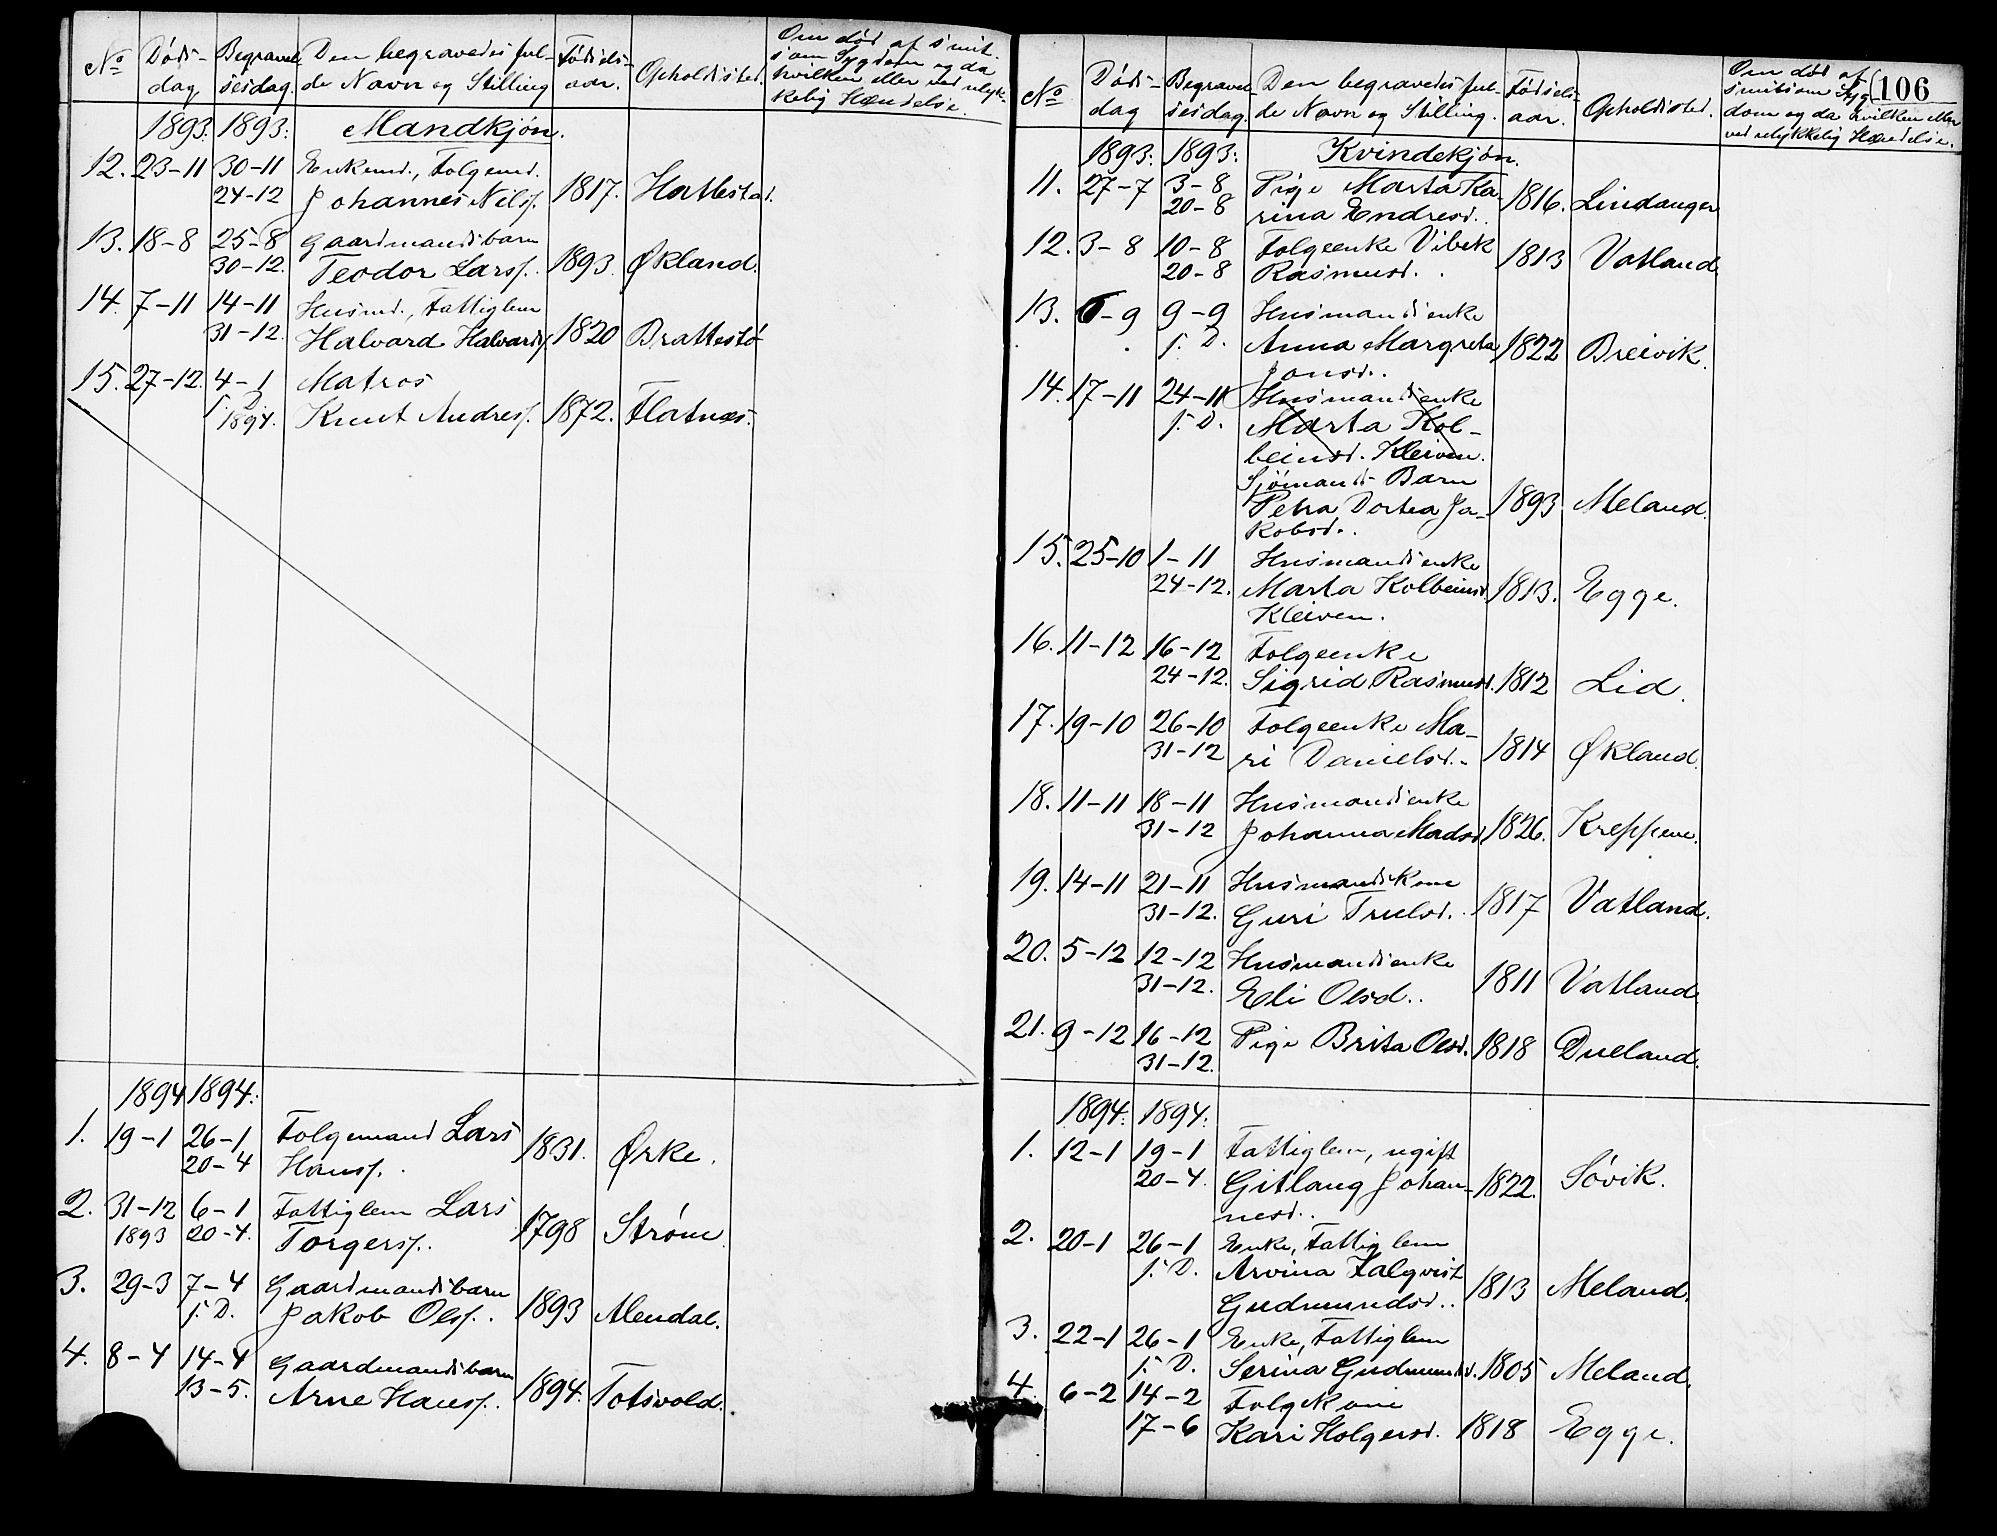 No Døds- Begravel- Den begravedes ful- Fødsels- Opholdssted. Om død af smit-
dag sesdag. de Navn og Stilling aar. som Sygdom og da
hvilken eller ved ulyk-
kelig Hændelse.
1893. 1893. Mandkjøn.
12. 23-11 30-11 Enkemd., Folgemd.
24-12 Johannes Nilss. 1817. Hattestad.
13. 18-8 25-8 Gaardmandsbarn
30-12. Teodor Larss. 1893. Økland.
14. 7-11 14-11 Husmd., Fattiglem
31-12. Halvard Halvards. 1820 Brattestø
15. 27-12. 4-1 Matros
s. D. 1894. Knut Andress. 1872. Flatnæs.
1894 1894.
1. 19-1 26-1 Folgemand Lars
20-4 Hanss. 1831. Ørke.
2. 31-12 6-1 Fattiglem Lars
1893 20-4. Torgerss. 1798 Strøm.
3. 29-3 7-4 Gaardmandsbarn
s. D. Jakob Olss. 1893 Alendal.
4. 8-4 14-4 Gaardmandsbarn
13-5. Arne Hanss. 1894. Totsvold.
106
No Døds- Begravel- Den begravedes ful- Fødsels- Opholdssted. Om død af
dag sesdag. de Navn og Stilling. aar. smitsom Syg
dom og da hvilken eller
ved ulykkelig Hændelse.
1893. 1893. Kvindekjøn.
11. 27-7 3-8 Pige Marta Ka-
20-8 rina Endresd. 1816. Lindanger
12. 3-8 10-8 Folgeenke Vibek
20-8 Rasmusd. 1813 Vatland
13. 6-9 9-9 Husmandsenke
s. D. Anna Margreta 1822 Breivik.
Jonsd.
14. 17-11 24-11 Husmandsenke
s. D. Marta Kol-
beinsd. Kleiven.
Sjømands Barn
Petra Dortea Ja- 1893. Meland.
kobsd.
15. 25-10 1-11 Husmandsenke
24-12. Marta Kolbeinsd. 1813. Egge.
Kleiven.
16. 11-12 16-12 Folgeenke
24-12. Sigrid Rasmusd. 1812 Lid.
17. 19-10 26-10 Folgeenke Ma-
31-12 ri Danielsd. 1814 Økland.
18. 11-11 18-11 Husmandsenke
31-12 Johanna Madsd. 1826. Kreppene.
19. 14-11 21-11 Husmandskone
31-12. Guri Truelsd. 1817 Vatland.
20. 5-12 12-12 Husmandsenke
31-12. Eli Olsd. 1811 Vatland
21. 9-12 16-12 Pige Brita Olsd. 1818 Dueland.
31-12.
1894. 1894.
1. 12-1 19-1 Fattiglem, ugift
20-4. Gitlaug Johan- 1822. Søvik.
nesd.
2. 20-1 26-1 Enke, Fattiglem
s. D. Arvina Falqvist
Gudmundsd. 1813 Meland.
3. 22-1 26-1 Enke, Fattiglem
s. D. Serina Gudmundsd. 1805 Meland.
4. 6-2 14-2 Folgekone
17-6 Kari Holgersd. 1818 Egge.